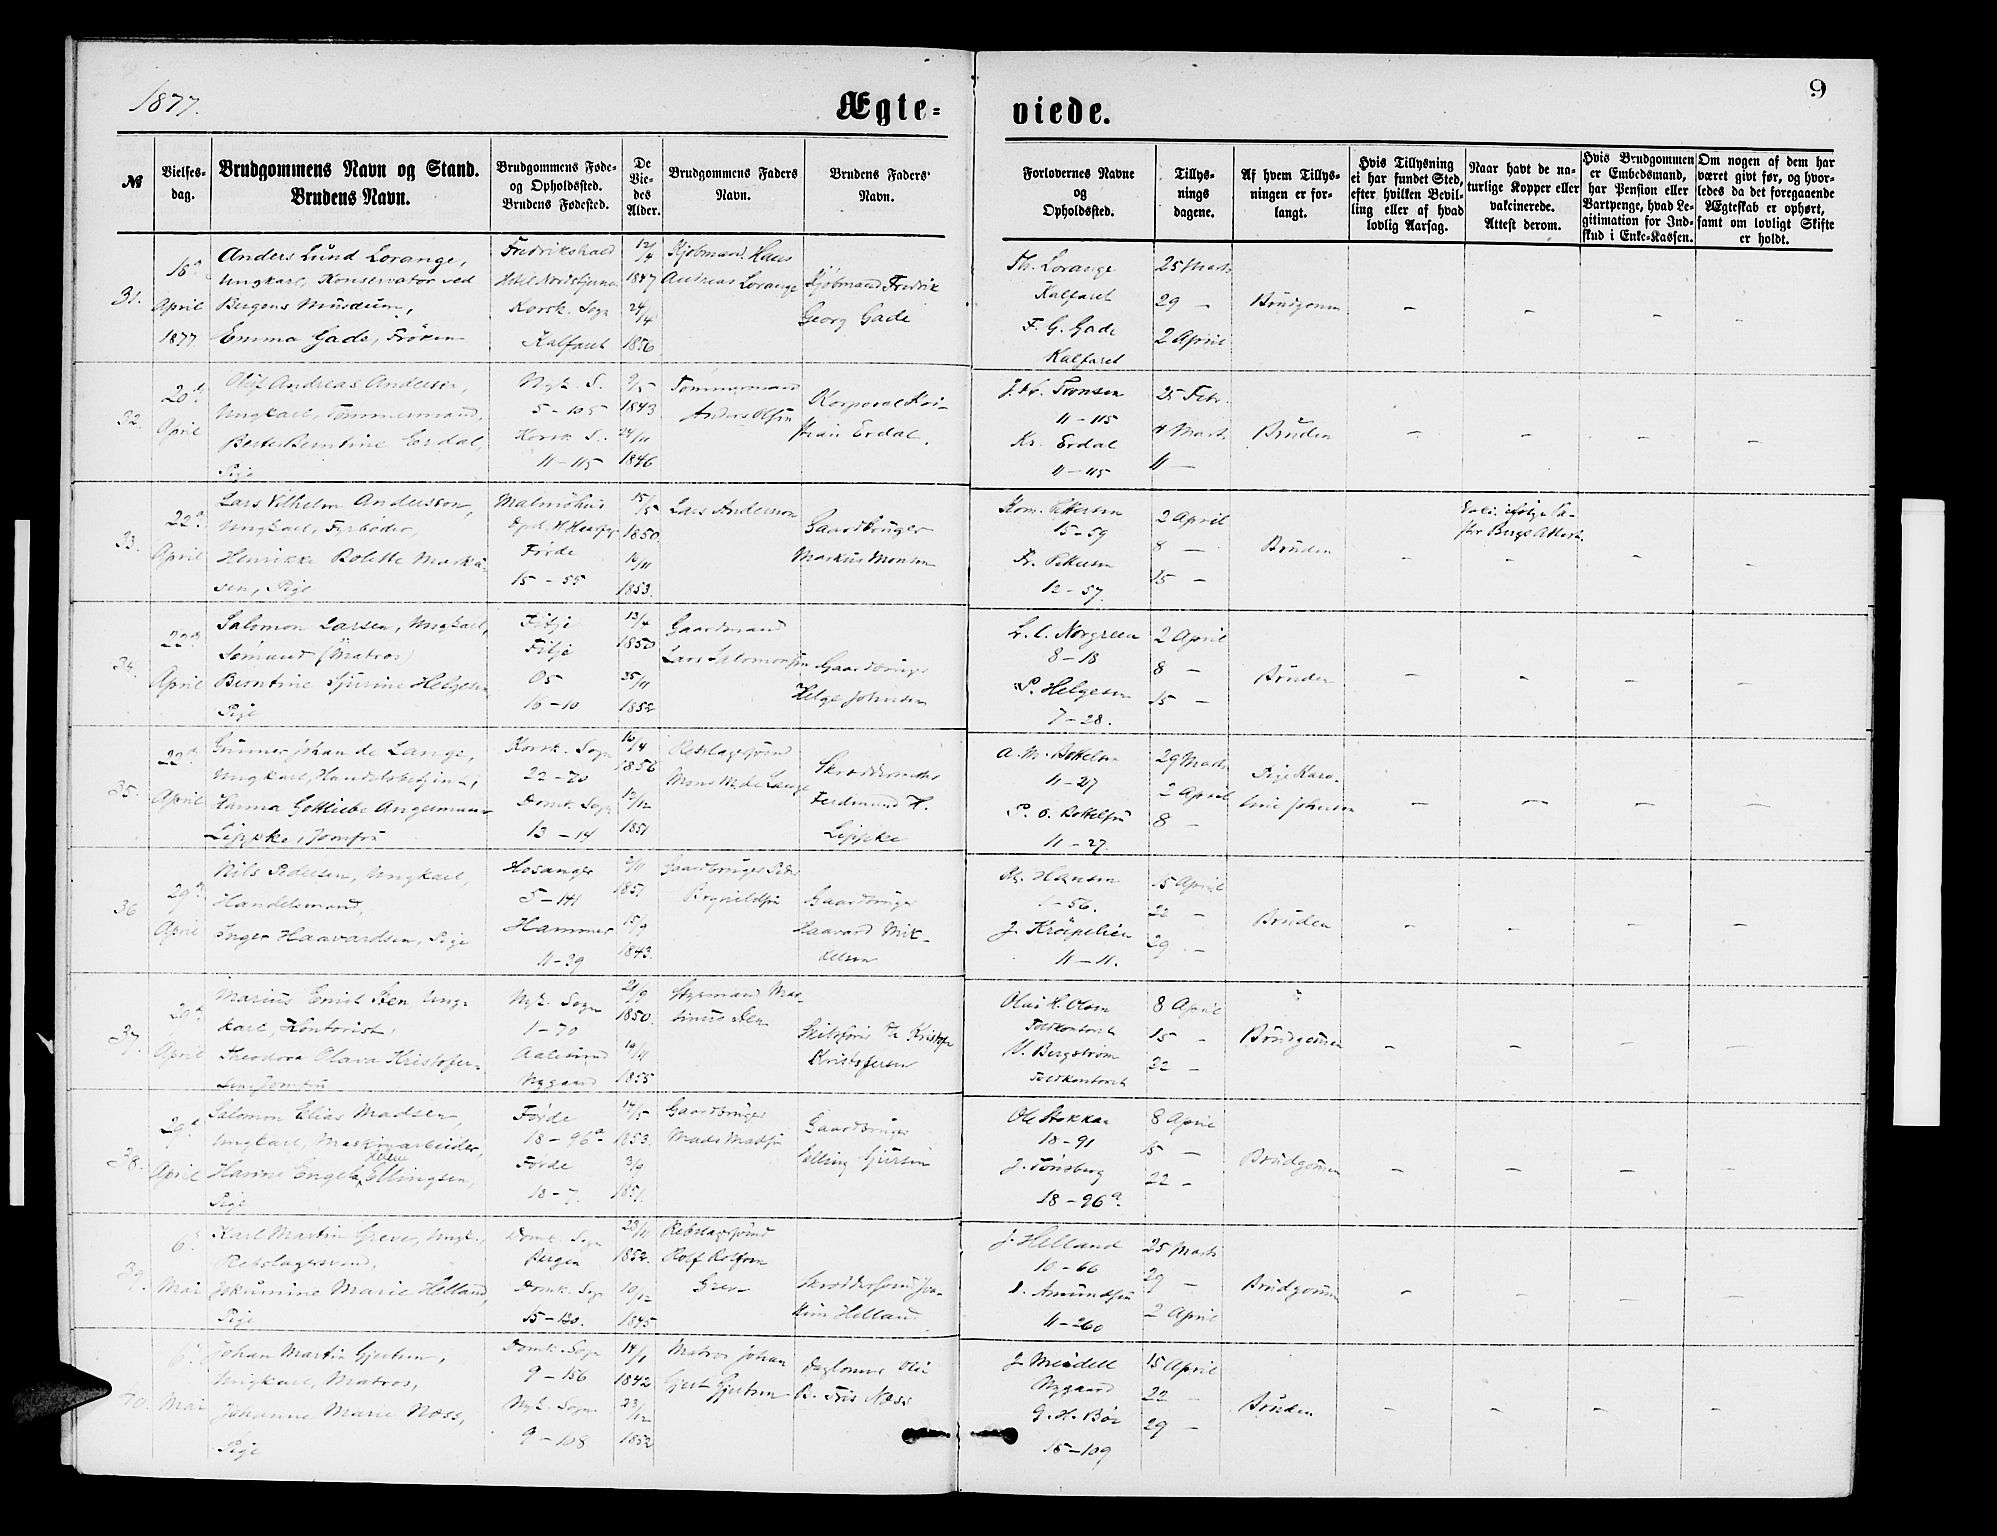 1877.
Ægte=
viede.
9
№
Vielses-
dag.
Brudgommens Navn og Stand.
Brudens Navn.
Brudgommens Føde-
og Opholdssted.
Brudens Fødested.
De
Vie-
des
Alder.
Brudgommens Faders
Navn.
Brudens Faders
Navn.
Forlovernes Navne
og
Opholdssted.
Tillys-
nings
dagene.
Af hvem Tillys-
ningen er for-
langt.
Hvis Tillysning
ei har fundet Sted,
efter hvilken Bevil-
ling eller af hvad
lovlig Aarsag.
Naar havt de na-
turlige Kopper eller
vakcinerede.
Attest derom.
Hvis Brudgommen
er Embedsmand,
har Pension eller
Vartpenge, hvad Le-
gitimation for Ind-
skud i Enke-Kassen.
Om nogen af dem har
været givt før, og hvor-
ledes da det foregaaende
Ægteskab er ophørt,
samt om lovligt Skifte
er holdt.
31.
16d
April
1877.
Anders Lund Lorange,
Ungkarl, Konservator ved
Bergens Musæum,
Emma Gade, Frøken
Fredrikshald
Hotel Nordstjernen
Korsk. Sogn
Kalfaret
12/4
1847
24/4
1856
Kjøbmand Hans
Andreas Lorange
Kjøbmand Fredrik
Georg Gade
Th. Lorange
Kalfaret
F. G. Gade
Kalfaret
25 Marts
29 –
2 April
Brudgommen
32.
20d
April
Oluf Andreas Andersen,
Ungkarl, Tømmermand,
Berte Berntine Erdal,
Pige
Nyk. S.
5-105
Korsk. S.
11-115
9/5
1843
24/11
1846
Tømmermand
Anders Olsen
Korporal Kri-
stian Erdal.
Tronsen
11-115
Kr. Erdal
11-115
25 Febr.
4 Marts
11 –
Bruden
33.
22d
April
Lars Vilhelm Andersson,
Ungkarl, Fyrbøder,
Henrikke Bolette Marku-
sen, Pige
Malmøhus
Førde
15-55
15/5
1850
1853.
Lars Anderson
Gaardbruger
Markus Monsen
Kom. Pettersen
15-59
Fr. Pettersen
12-57.
2 April
8 –
15 –
Bruden
34.
22d
April
Salomon Larsen, Ungkarl,
Sømand (Matros)
Berntine Sjurine Helgesen
Pige
Fitje
Fitje
Os
16-10
13/4
1850
25/11
1852
Gaardmand
Lars Salomonsen
Gaardbruger
Helge Johnsen
L. C. Norgreen
8-18
P. Helgesen
7-28.
2 April
8 –
15 –
Bruden
35.
22d
April
Gunner Johan de Lange,
Ungkarl, Handelsbetjent,
Hanna Gottliebe Angermann
Lippke, Jomfru
Korsk. Sogn
22-70
Domk. Sogn
13-14
16/4
1856
12/12
1851
Rebslagersvend
Mons M. de Lange
Skræddermester
Ferdinand H.
Lippke
A. M. Bottelsen
11-27
P. O. Bottelsen
11-27.
29 Marts
2 April
8 –
Pige Karo-
line Johnsen
36
29d
April
Nils Pedersen, Ungkarl,
Handelsmand,
Inger Haavardsen, Pige
Hosanger
5-141
Hammer
11-39
9/11
1851
15/9
1843.
Gaardbruger Peder
Gaardbruger
Haavard Mik-
kelsen
Hansen
1-56.
J. Krøipelien
11-11.
15 April
22 –
29 –
Bruden
37.
29d
April
Marius Emil Steen Ung-
karl, Kontorist,
Theodora Olava Kristofer-
sen, Jomfru
Nyk. Sogn
1-70
Aalesund
Nygaard
21/9
1850.
19/11
1855
Styrmand Mar-
tinus Steen
Kristofersen
Olai H. Olsen
Toldkontoret
M. Bergstrøm
Toldkontoret
8 April
15 –
22 –
Brudgommen
38.
29d
April
Salomon Elias Madsen,
Ungkarl, Maskinarbeider,
Hanne Engel Helene Ellingsen,
Pige
Førde
18-96a
Førde
18-7.
17/5
1853.
3/9
1851.
Gaardbruger
Mads Madsen
Gaardbruger
Elling Sjursen
Ole Stokkan
18-91
J. Tønsberg
18-96a.
8 April
15 –
22 –
Brudgommen
39.
6d
Mai
Karl Martin Greve, Ungk.,
Rebslagersvend,
Jokumine Marie Helland,
Pige
Domk. Sogn
Bergen
Domk. Sogn
15-130.
23/11
1852.
10/12
1845
Rebslagersvend
Rolf Rolfsen
Greve
Skræddersvend Joa-
kim Helland
J. Helland
10-66
Amundsen
11-260
25 Marts
29 –
2 April
Brudgommen
40.
6d
Mai
Johan Martin Gjertsen,
Ungkarl, Matros,
Johanne Marie Næss,
Pige
Domk. Sogn
9-156
Nyk. Sogn
9-108
14/1
1842
23/12
1852
Matros Johan
Gjert Gjertsen
Daglønner Ole
B. Friis Næss
J. Meidell
Nygaard
G. H. Bøe
15-109
15 April
22 –
29 –
Bruden